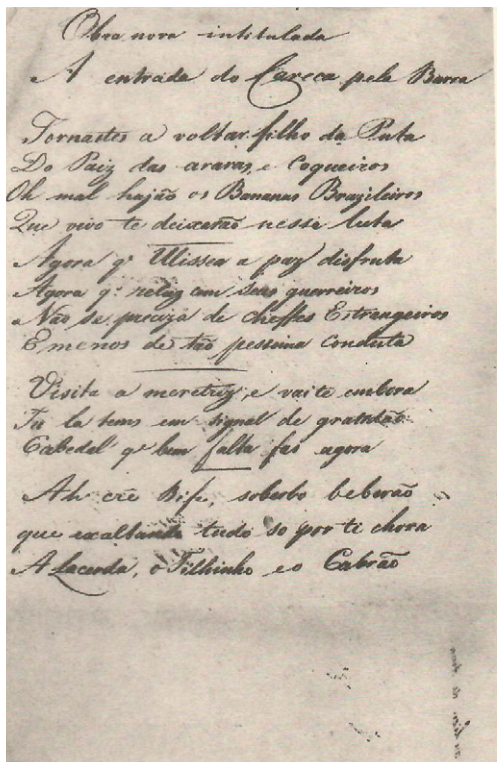 Obra nova intitulada
A entrada do Careca pela Barra
Tornastes a voltar filho da Puta
Do Paiz das araras, e Coqueiros
Oh mal hajão os Bananas Brazileiros
Que vivo te deixarão nessa luta
Agora q.e Ulissea a paz disfruta
Agora q.e com seus guerreiros
Não se preciza de cheffes Estrangeiros
E menos de tão pessima conducta
Visita a meretriz, e vai te embora
Tu la tens em signal de gratidão
Cabedal q.e bem falta faz agora
Ah cre Bife, soberbo beberão
que exaltando tudo so por ti chora
A Lacerda, o Filhinho e o Cabrão